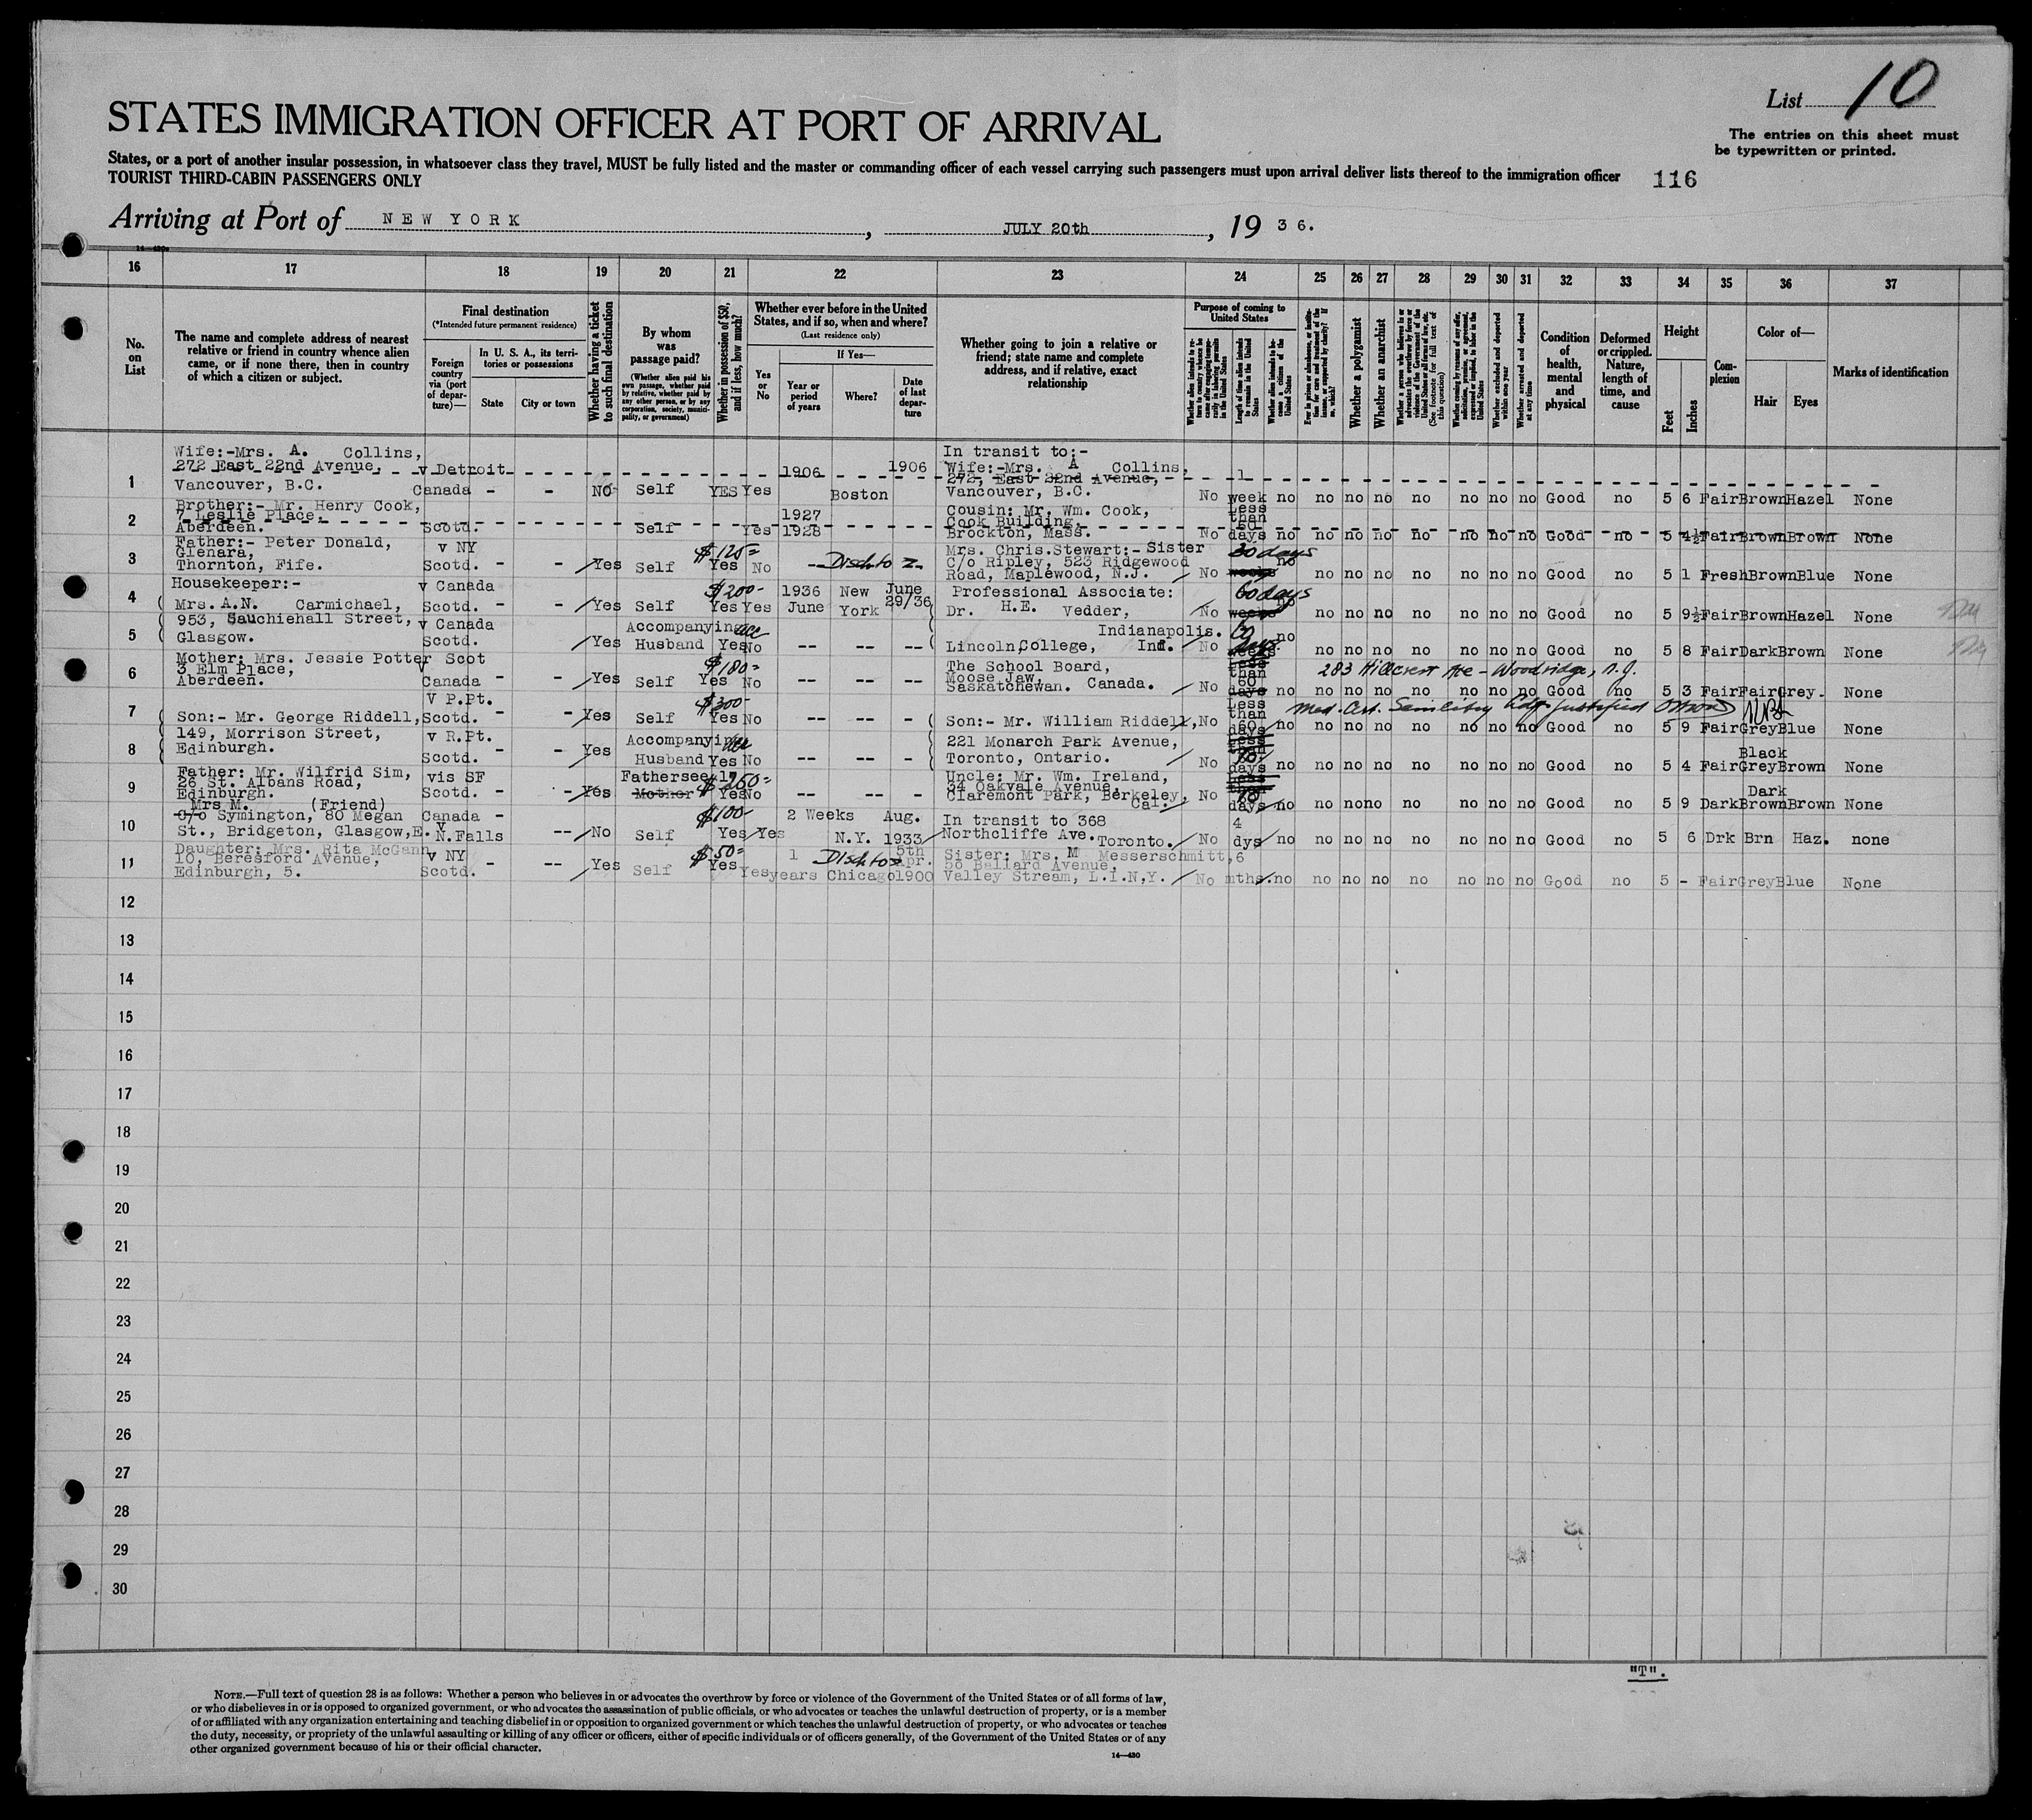 List 10
STATES IMMIGRATION OFFICER AT PORT OF ARRIVAL
The entries on this sheet must
be typewritten or printed.
States, or a port of another insular possession, in whatsoever class they travel, MUST be fully listed and the master or commanding officer of each vessel carrying such passengers must upon arrival deliver lists thereof to the immigration officer
TOURIST THIRD-CABIN PASSENGERS ONLY
116
Arriving at Port of NEW YORK, JULY 20th, 1936.
16 17 18 19 20 21 22 23 24 25 26 27 28 29 30 31 32 33 34 35 36 37
No. on List
The name and complete address of nearest relative or friend in country whence alien came, or if none there, then in country of which a citizen or subject.
Final destination
(*Intended future permanent residence)
Foreign country via (port of departure)—
In U. S. A., its territories or possessions
State
City or town
Whether having a ticket to such final destination
By whom was passage paid?
(Whether alien paid his own passage, whether paid by relative, whether paid by any other person, or by any corporation, society, municipality, or government)
Whether in possession of $50, and if less, how much?
Whether ever before in the United States, and if so, when and where?
(Last residence only)
Yes or No
If Yes—
Year or period of years
Where?
Date of last departure
Whether going to join a relative or friend; state name and complete address, and if relative, exact relationship
Purpose of coming to United States
Whether alien intends to return to country whence he came after engaging temporarily in laboring pursuits in the United States
Length of time alien intends to remain in the United States
Whether alien intends to become a citizen of the United States
Ever in prison or almshouse, or institution for care and treatment of the insane, or supported by charity? If so, which?
Whether a polygamist
Whether an anarchist
Whether a person who believes in or advocates the overthrow by force or violence of the Government of the United States or all forms of law, etc. (See footnote for full text of this question)
Whether coming by reason of any offer, solicitation, promise, or agreement, expressed or implied, to labor in the United States
Whether excluded and deported within one year
Whether arrested and deported at any time
Condition of health, mental and physical
Deformed or crippled. Nature, length of time, and cause
Height
Feet
Inches
Complexion
Color of—
Hair
Eyes
Marks of identification
1 Wife:-Mrs. A. Collins,
272 East 22nd Avenue,
Vancouver, B.C.
v Detroit
Canada - - No Self YES Yes 1906 Boston 1906
In transit to:-
Wife:-Mrs. A Collins,
272, East 22nd Avenue,
Vancouver, B.C.
No 1 week no no no no no no no no Good no 5 6 Fair Brown Hazel None
2 Brother:- Mr. Henry Cook,
7 Leslie Place,
Aberdeen.
Scotd. Self Yes 1927
1928
Cousin: Mr. Wm. Cook,
Cook Building,
Brockton, Mass.
No Less than 60 days no no no no no no no no Good no 5 4½ Fair Brown Brown None
3 Father:- Peter Donald,
Glenara,
Thornton, Fife.
v NY
Scotd. - - Yes Self $125= Yes No
Mrs. Chris.Stewart:- Sister
C/o Ripley, 523 Ridgewood
Road, Maplewood, N.J.
No 30 days weeks no no no no no no no no Good no 5 1 Fresh Brown Blue None
4 Housekeeper:-
Mrs. A.N. Carmichael,
v Canada
Scotd. - - Yes Self $200- Yes Yes 1936 June New York June 29/36
Professional Associate:
Dr. H.E. Vedder,
No 60 days weeks no no no no no no no no Good no 5 9½ Fair Brown Hazel
5 953, Sauchiehall Street,
Glasgow.
v Canada
Scotd. Yes Accompanying Husband Yes No -- -- --
Indianapolis.
Lincoln,College, Ind.
No no no no no no no no no Good no 5 8 Fair Dark Brown None
6 Mother: Mrs. Jessie Potter
3 Elm Place,
Aberdeen.
Scot
v
Canada - - Yes Self $180= Yes No -- -- --
The School Board,
Moose Jaw,
Saskatchewan. Canada.
283 Hillcrest Ave - Woodridge, N.J.
No Less than 60 days no no no no no no no no Good no 5 3 Fair Fair Grey. None
7 Son:- Mr. George Riddell,
V P.Pt.
Scotd. - - Yes Self $300- Yes No -- -- --
Son:- Mr. William Riddell,
Med. Cert. Senility
No Less than 60 days no no no no no no no no Good no 5 9 Fair Grey Blue None
8 149, Morrison Street,
Edinburgh.
v R.Pt.
Scotd. - - Yes Accompanying Husband Yes No -- -- --
221 Monarch Park Avenue,
Toronto, Ontario.
No Less than days no no no no no no no Good no 5 4 Fair Black Grey Brown None
9 Father: Mr. Wilfrid Sim,
26 St. Albans Road,
Edinburgh.
vis SF
Scotd. - - Yes Father Mother Yes No -- -- --
Uncle: Mr. Wm. Ireland,
34 Oakvale Avenue,
Claremont Park, Berkeley,
Cal.
No days no no no no no no no no Good no 5 9 Dark Dark Brown Brown None
10 Mrs M. (Friend)
C/o Symington, 80 Megan
St., Bridgeton, Glasgow,E.
Canada -
v
N.Falls -- No Self $100- Yes Yes 2 Weeks N.Y. Aug. 1933
In transit to 368
Northcliffe Ave. Toronto.
No 4 dys no no no no no no no no Good no 5 6 Drk Brn Haz. none
11 Daughter: Mrs. Rita McGann
10, Beresford Avenue,
Edinburgh, 5.
v NY
Scotd. - -- Yes Self $50= Yes Yes 1 years Chicago 5th Apr. 1900
Sister: Mrs. M Messerschmitt,
58 Ballard Avenue,
Valley Stream, L.I.N,Y.
No 6 mths. no no no no no no no no Good no 5 - Fair Grey Blue None
12
13
14
15
16
17
18
19
20
21
22
23
24
25
26
27
28
29
30
"T".
NOTE.—Full text of question 28 is as follows: Whether a person who believes in or advocates the overthrow by force or violence of the Government of the United States or of all forms of law,
or who disbelieves in or is opposed to organized government, or who advocates the assassination of public officials, or who advocates or teaches the unlawful destruction of property, or is a member
of or affiliated with any organization entertaining and teaching disbelief in or opposition to organized government or which teaches the unlawful destruction of property, or who advocates or teaches
the duty, necessity, or propriety of the unlawful assaulting or killing of any officer or officers, either of specific individuals or of officers generally, of the Government of the United States or of any
other organized government because of his or their official character.
14—430